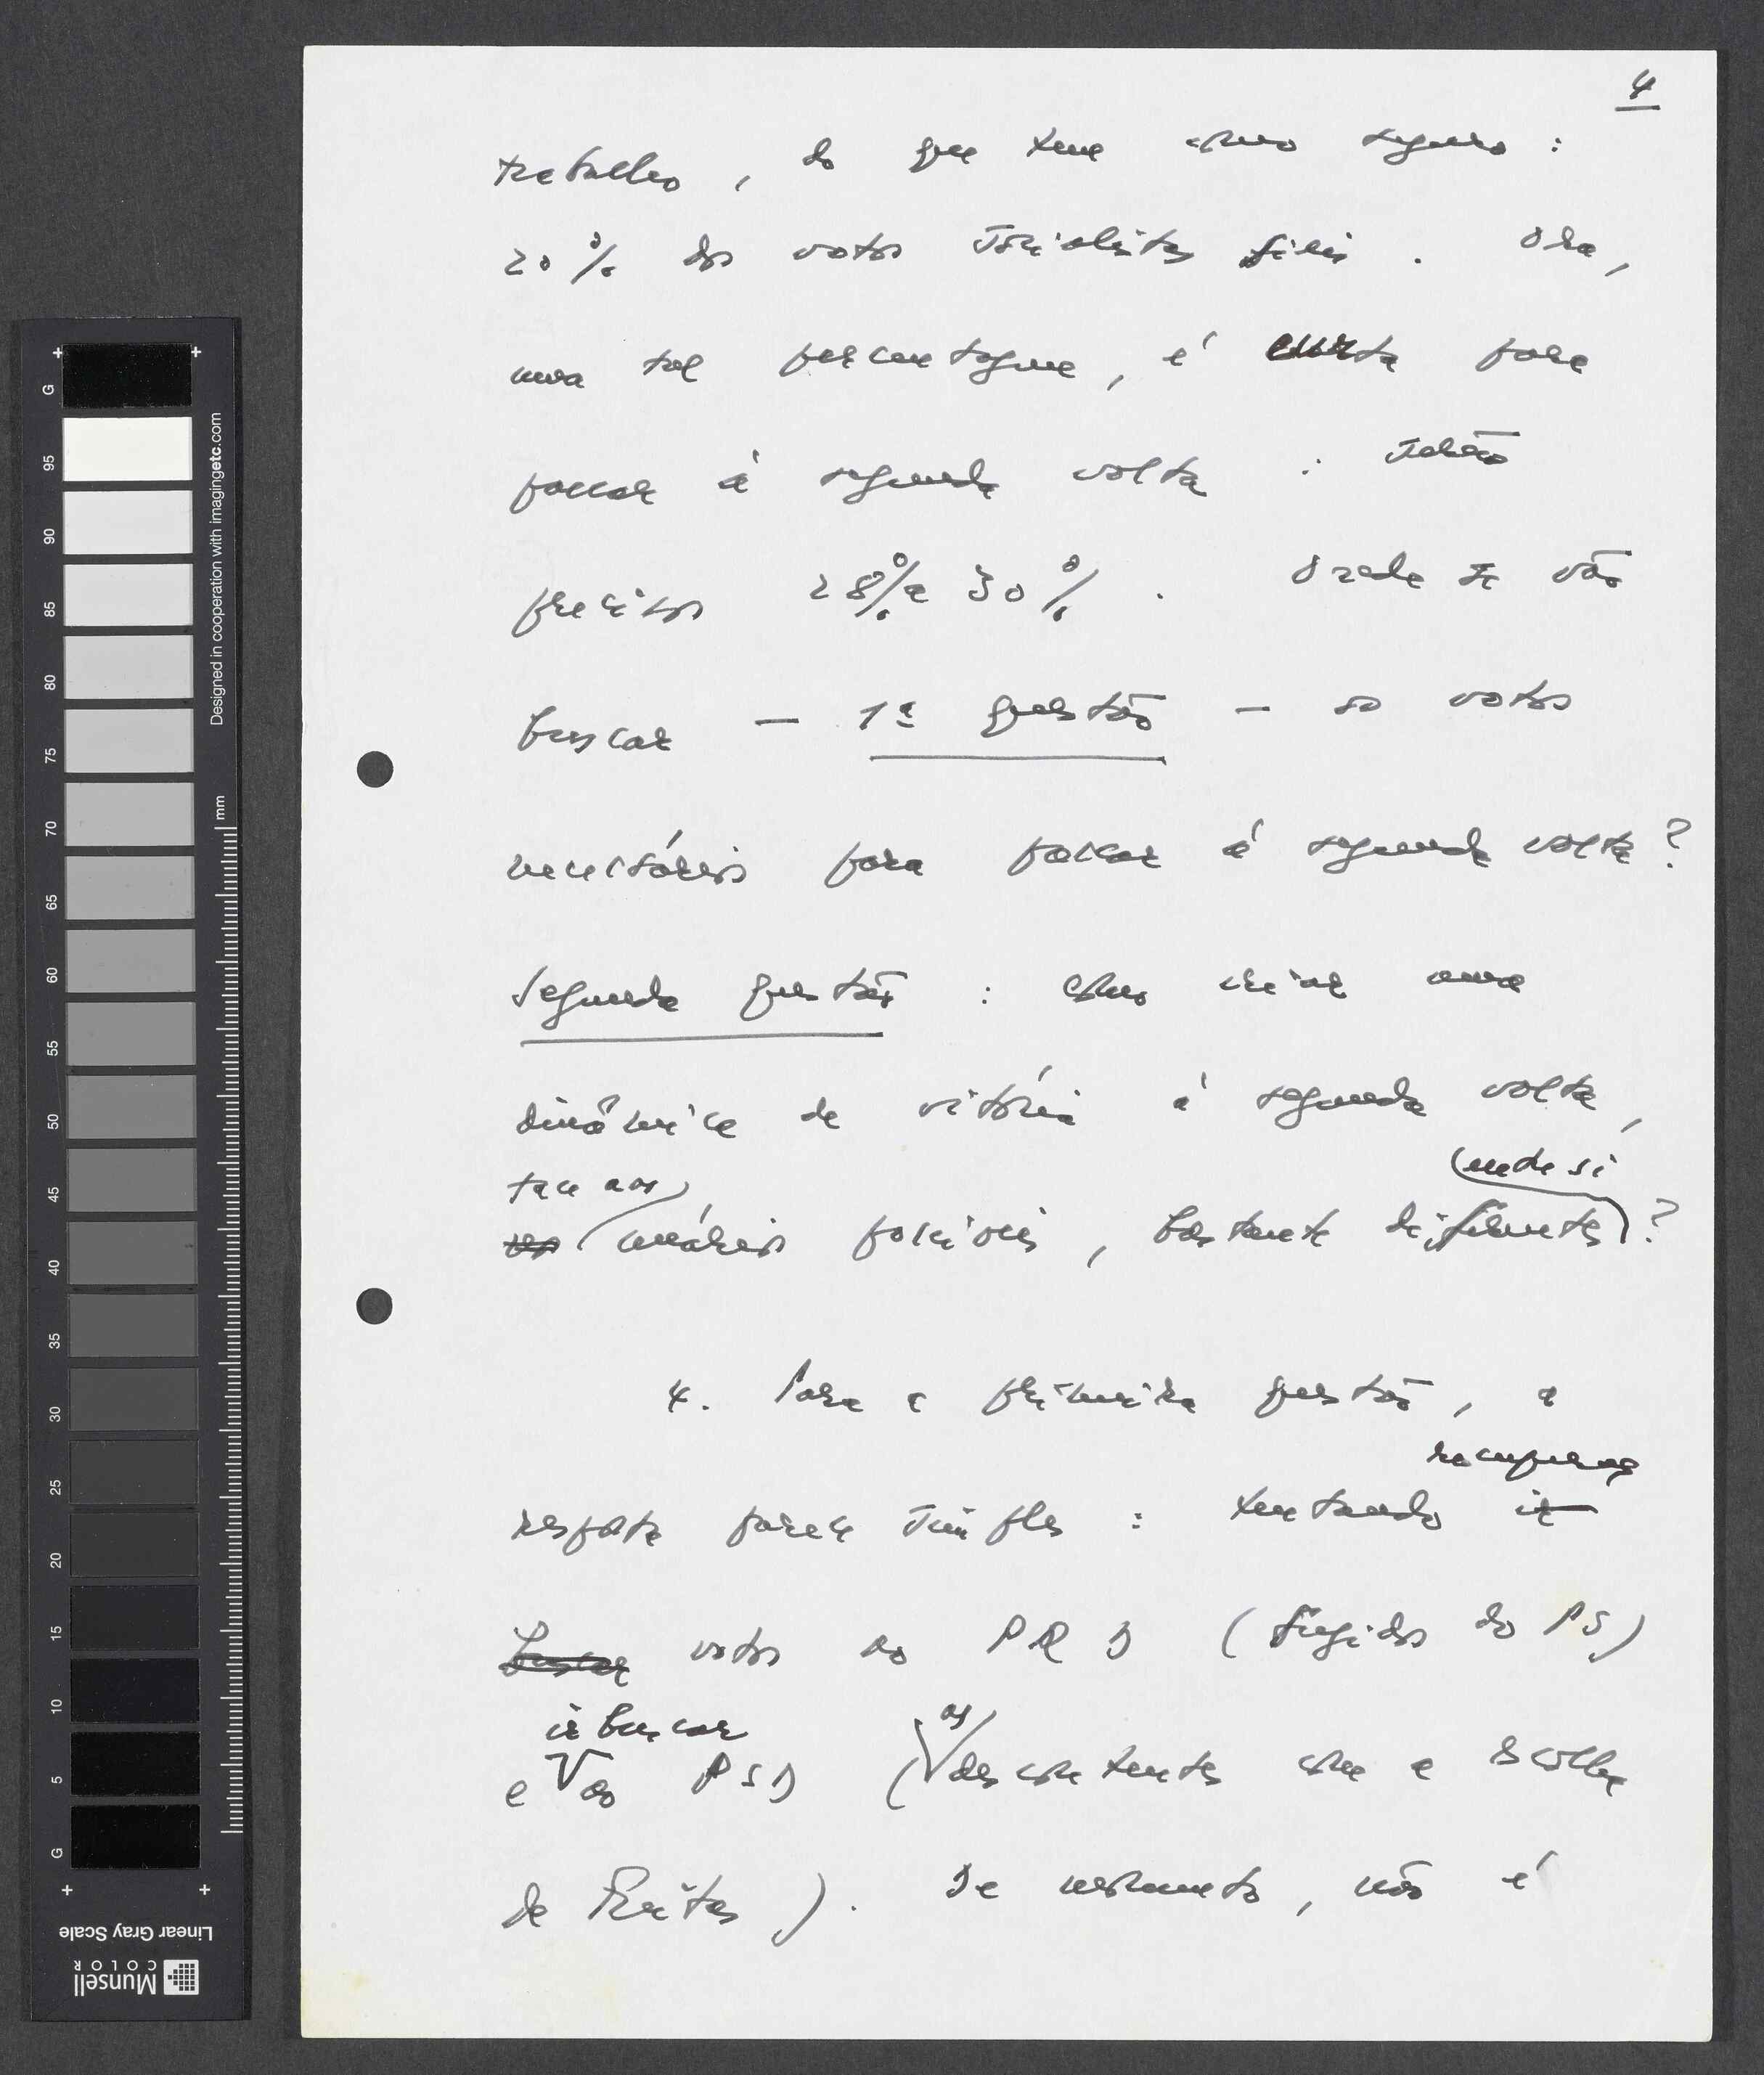 4
trabalho, do que tem como seguro:
20% dos votos socialistas fiéis. Ora,
uma tal percentagem, é curta para
passar à segunda volta: serão
precisos 28% a 30%. Onde se vão
buscar — 1ª questão — os votos
necessários para passar à segunda volta?
Segunda questão: como criar uma
dinâmica de vitória à segunda volta,
face aos (entre si
cenários possíveis, bastante diferentes)?
4. Para a primeira questão, a
recuperar
resposta parece simples: tentando ir
buscar votos ao PRD (fugidos do PS)
ir buscar os
e ao PSD (descontentes com a escolha
de Freitas). De momento, não é
G
95
90
85
80
75
70
65
60
55
50
45
40
35
30
25
20
15
10
5
G
mm
Designed in cooperation with imagingetc.com
Linear Gray Scale
Munsell
COLOR